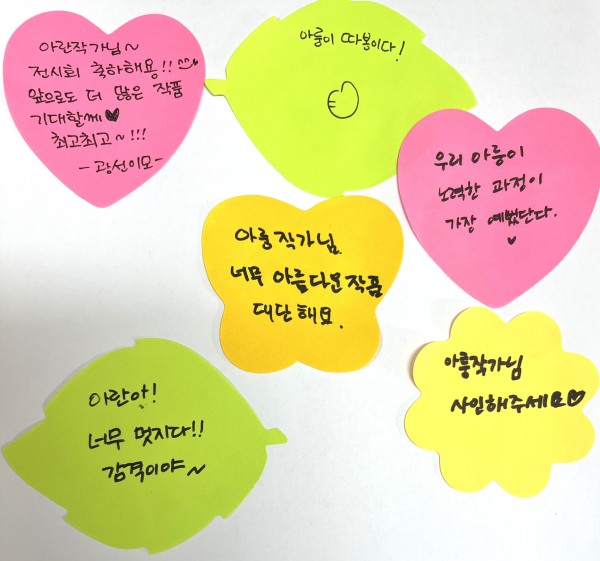 아란작가님~
전시회 축하해용!!
앞으로도 더 많은 작품
기대할께♥
최고최고~!!!
-광선이모-
아룽이 따봉이다!
우리 아릉이
노력한 과정이
가장 예뻤단다.
아룽작가님.
너무 아름다운 작품
대단해요.
아란아!
너무 멋지다!!
감격이야~
아룽작가님
사인해주세요♡